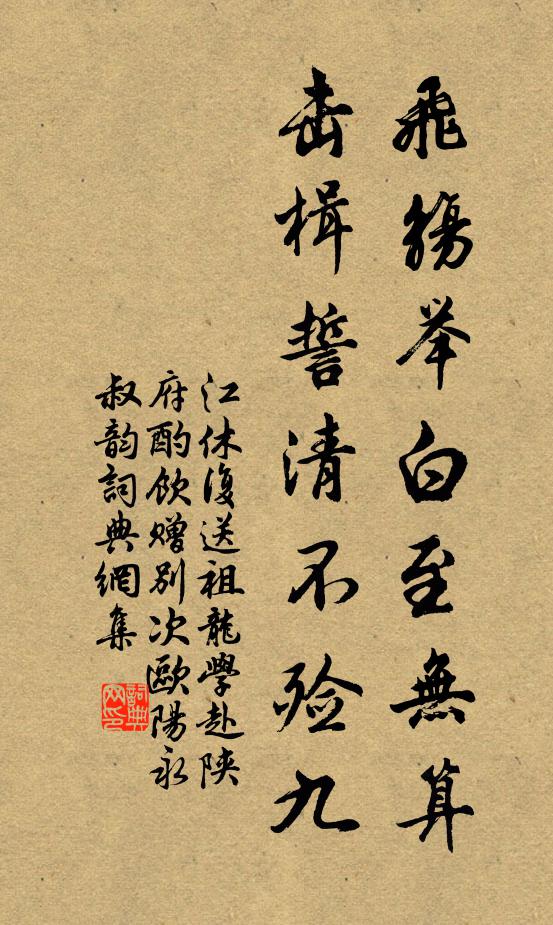 飛觴举白至無算
击楫誓清不殓九
江休復送祖龍學赴陝
府酌飲贈別次歐陽永
叔韵詞典網集
詞典网印